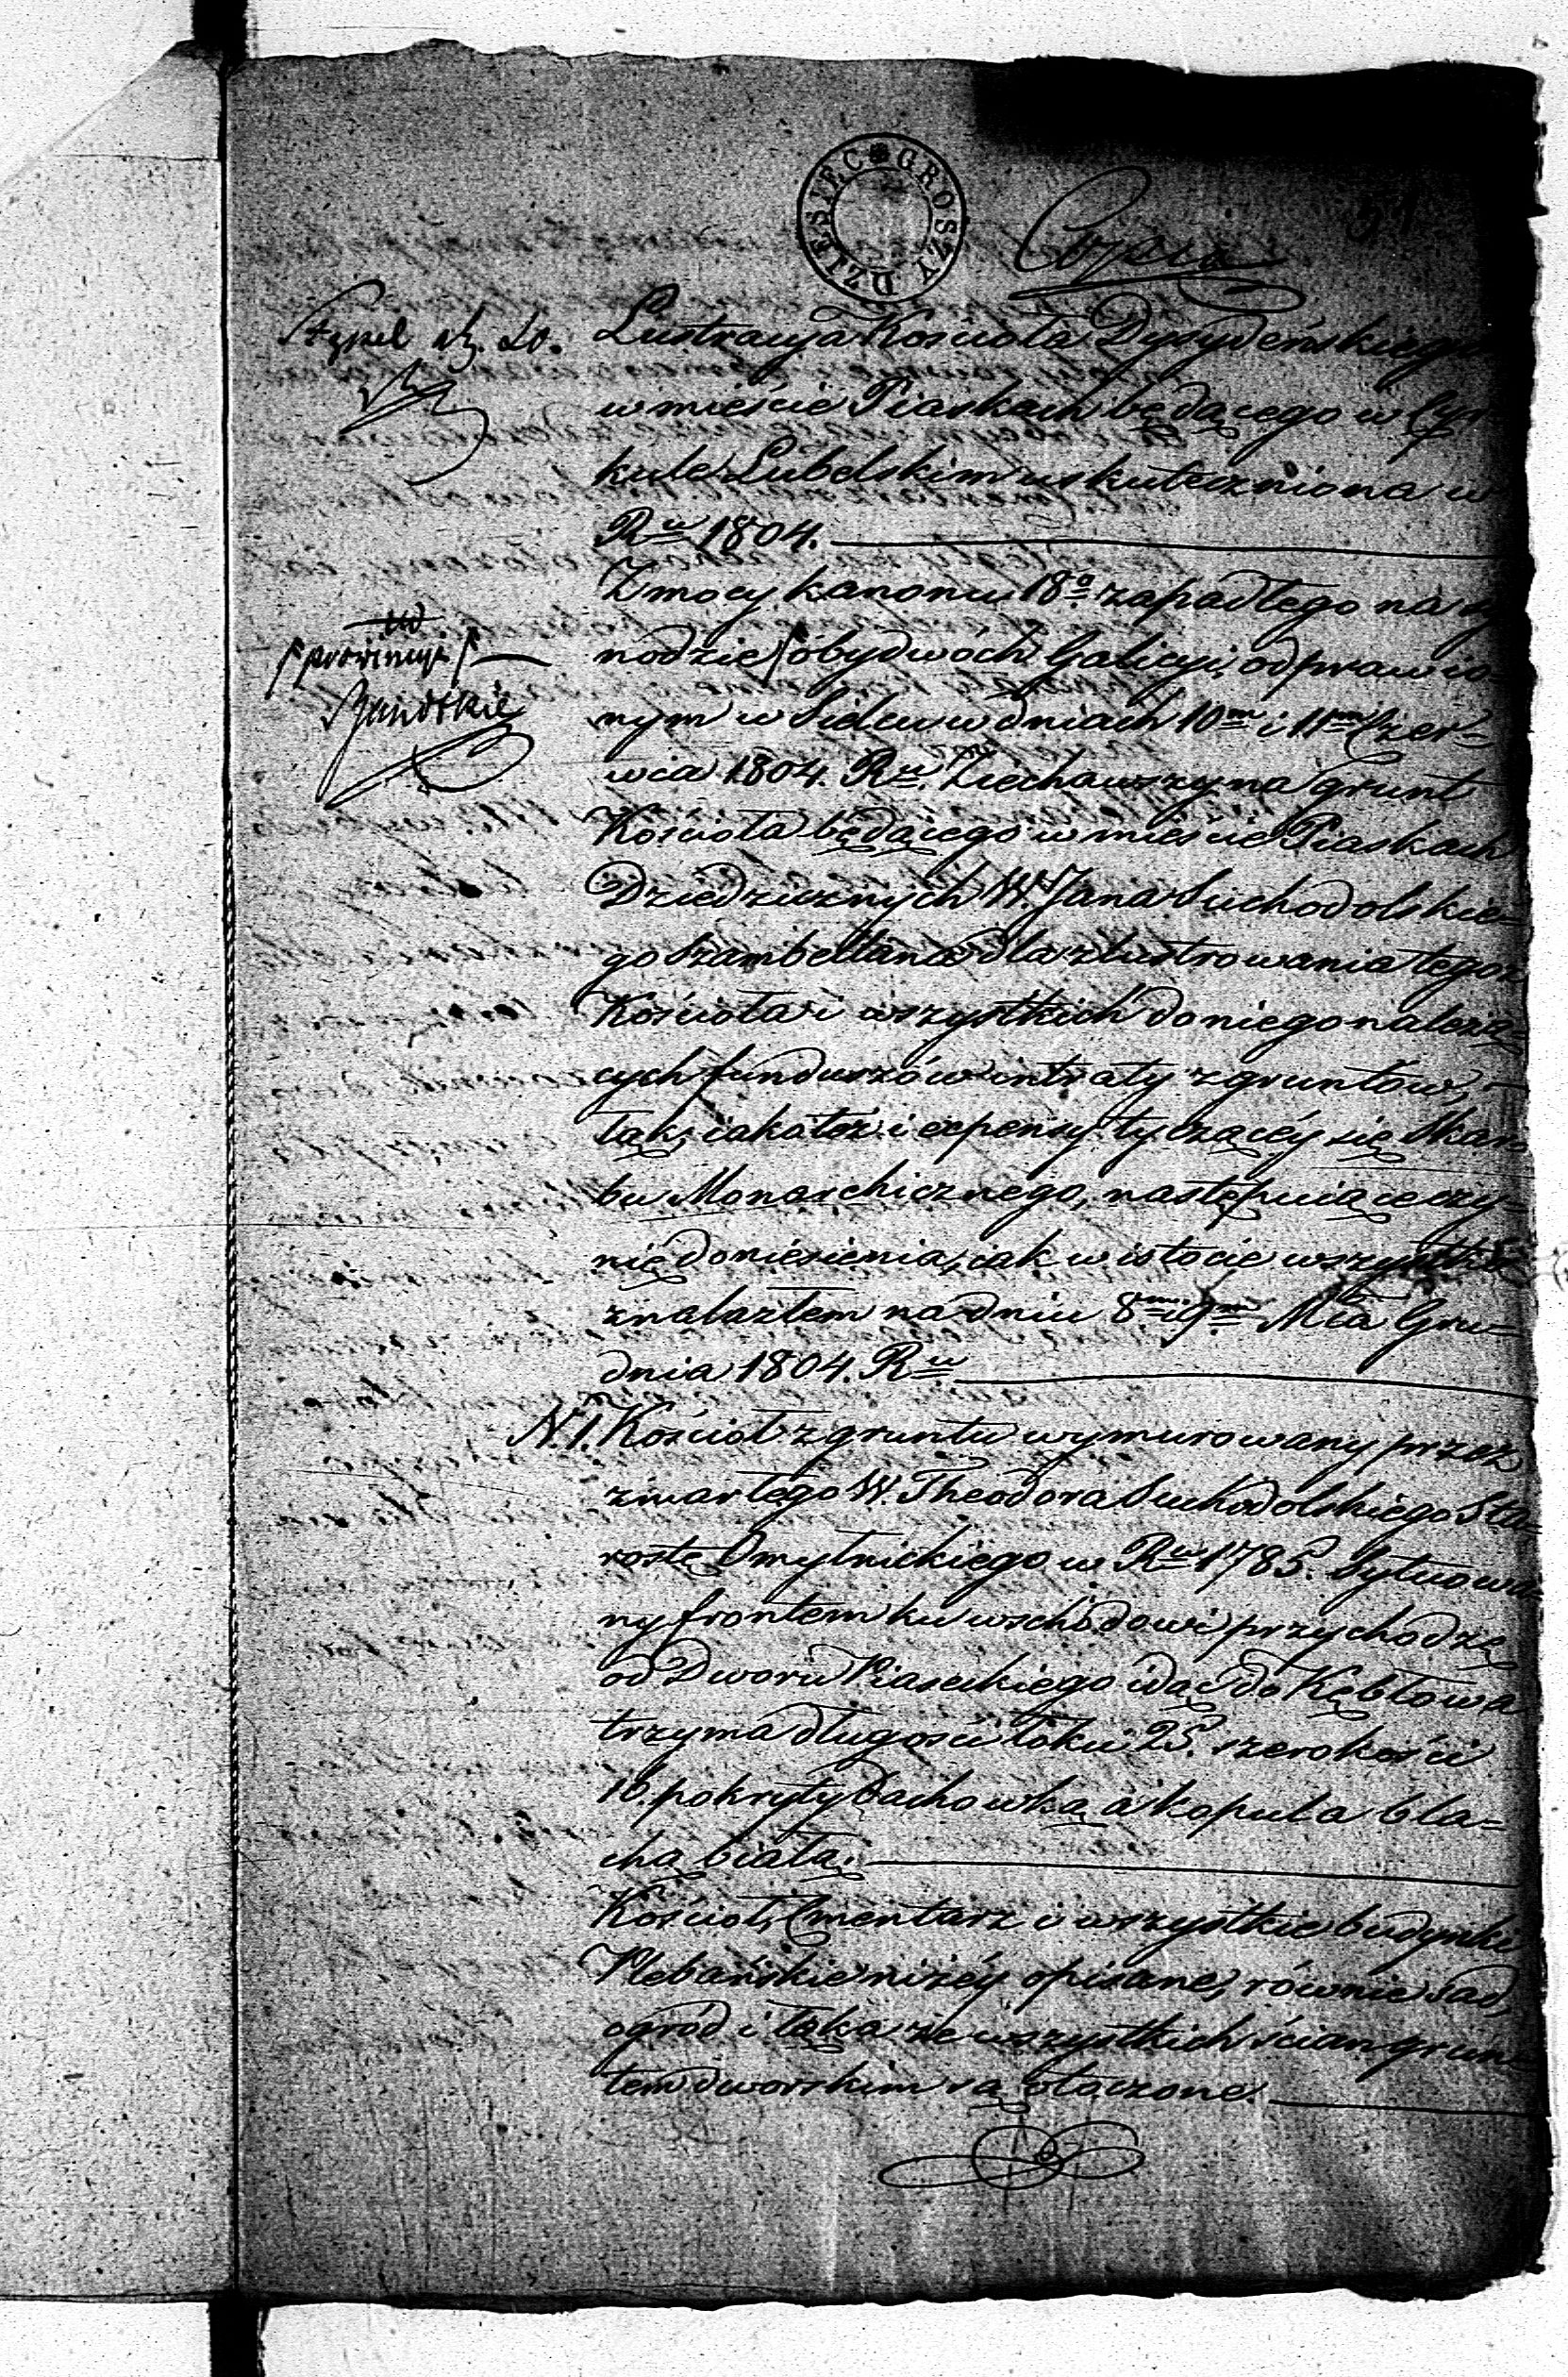 DZIESIĘĆ GROSZY
51
Copia
Stępel
Lustracya Kościoła Dysydeńskiego
w mieście Piaskach będącego w Cyr=
kule Lubelskim uskuteczniona w
Ru 1804.
Z mocy kanonu 18o zapadłego na sy
prowincyi
nodzie obydwóch Galicyi, odprawio
nym w Sielcu w dniach 10m i 11m Czer=
wca 1804. Ru. Ziechawszy na grunt
Kościoła będącego w mieście Piaskach
Dziedzicznych W. Jana Suchodolskie=
go Szambellana dla zlustrowania tegoż
Kościoła i wszystkich do niego należą=
cych funduszów intraty z gruntów,
tak, iako też i expensy tyczącéy się Skar=
bu Monarchicznego, następuiące czy=
nię doniesienia, iak w istocie wszystko
znalazłem na dniu 8m i 9m Mca Gru=
dnia 1804. Ru
N. 1. Kościół z gruntu wymurowany przez
zmarłego W. Theodora Suchodolskiego Sta=
rostę Smytnickiego w Ru 1785. Sytuowa=
ny frontem ku wschodowi przychodzę
od Dworu Piaseckiego idąc do Kębłowa
trzyma długości łokci 25. szerokości
10. pokryty Dachowką, a kopuła bla=
chą białą.
Kościół, Cmentarz i wszystkie budynki
Plebańskie niżéy opisane, równie Sad,
ogród i łąka ze wszystkich ścian grun=
tem dworskim są otoczone.